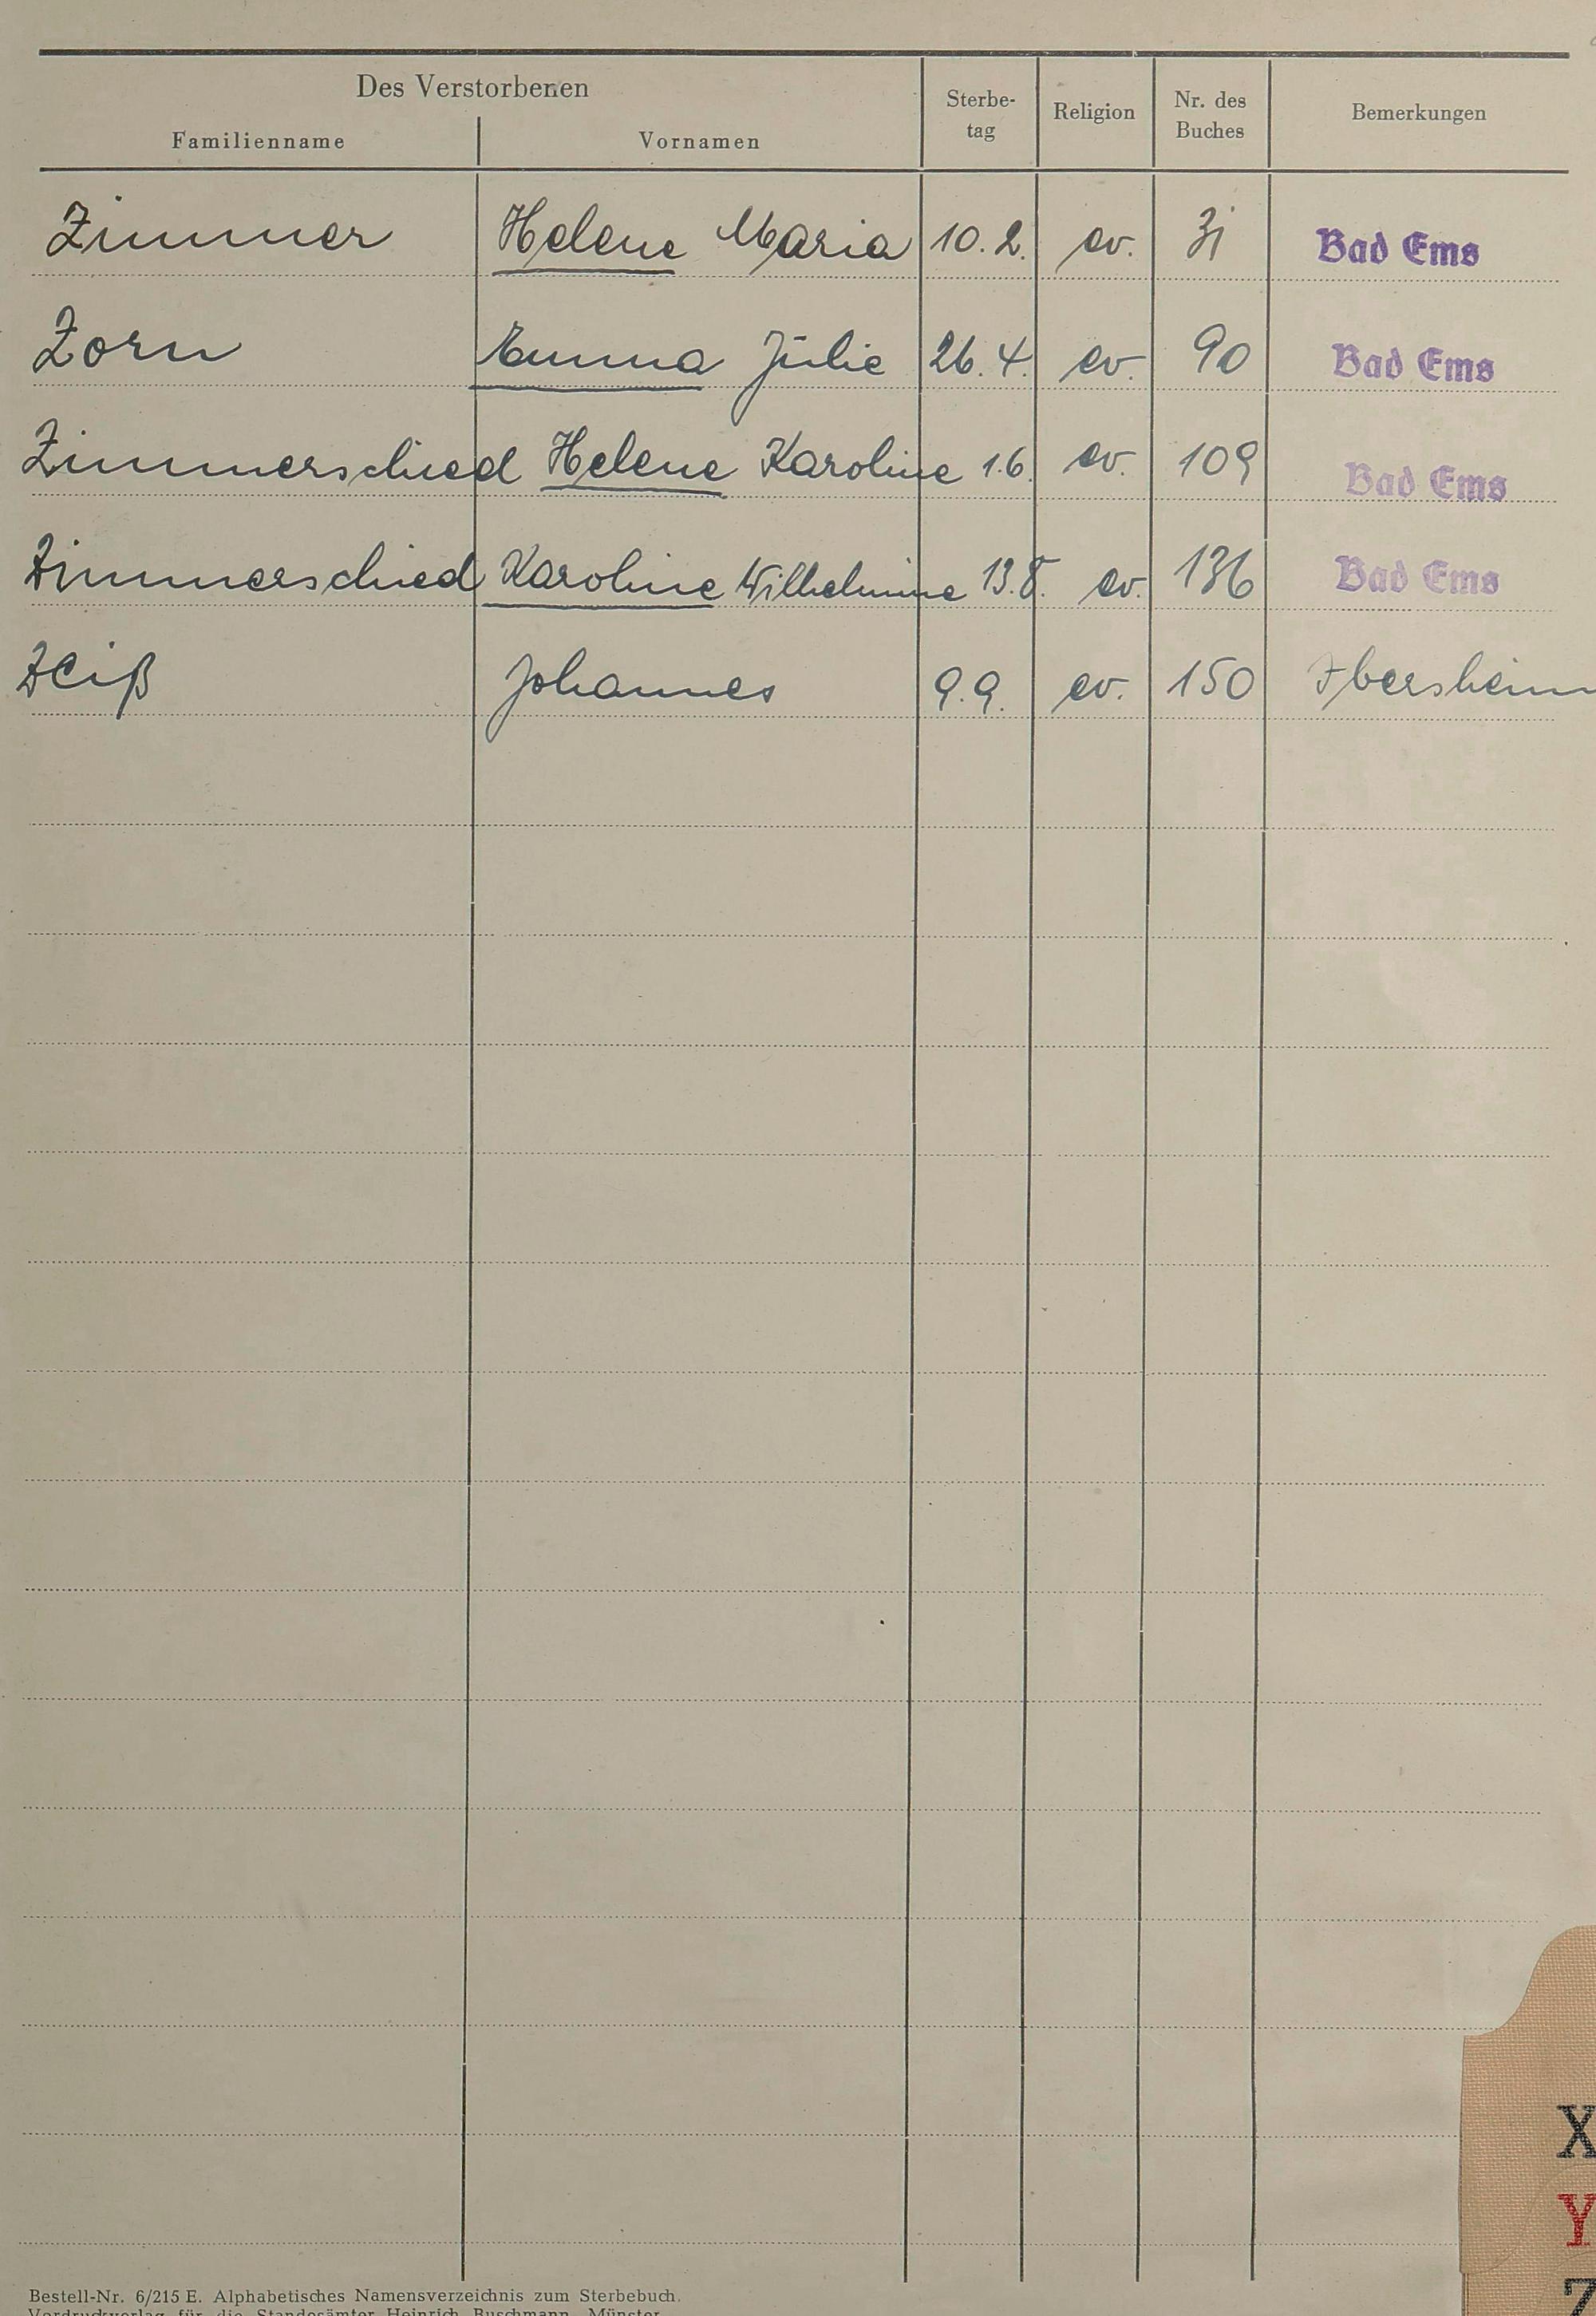 Des Verstorbenen
Familienname Vornamen Sterbe-tag Religion Nr. des Buches Bemerkungen
Zimmer Helene Maria 10.2. ev. 31 Bad Ems
Zorn Emma Julie 26.4. ev. 90 Bad Ems
Zimmerschied Helene Karoline 1.6. ev. 109 Bad Ems
Zimmerschied Karoline Wilhelmine 13.8. ev. 136 Bad Ems
Zeiß Johannes 9.9. ev. 150 Ibersheim
X
Y
Z
Bestell-Nr. 6/215 E. Alphabetisches Namensverzeichnis zum Sterbebuch.
Vordruckverlag für die Standesämter Heinrich Buschmann, Münster